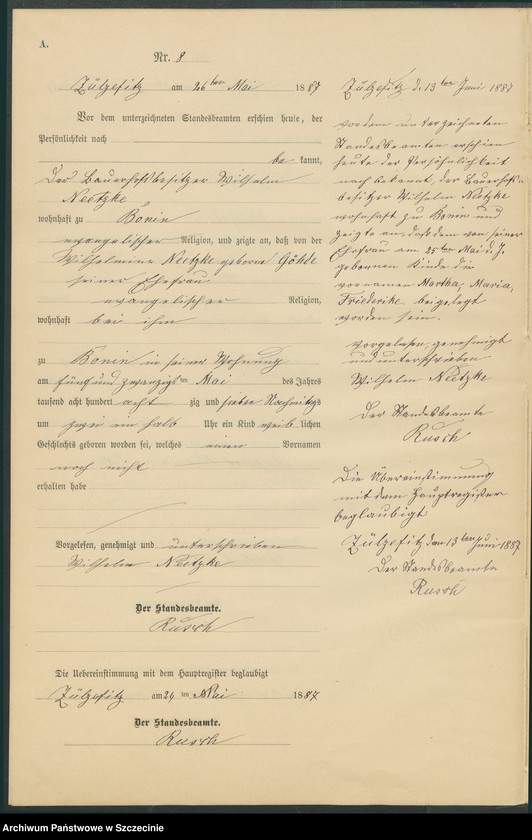 A.
Nr. 8
Zülzefitz am 26ten Mai 1887
Vor dem unterzeichneten Standesbeamten erschien heute, der
Persönlichkeit nach
be kannt,
Der Bauerhofsbesitzer Wilhelm
Neetzke
wohnhaft zu Bonin
evangelischer Religion, und zeigte an, daß von der
Wilhelmine Neetzke geborne Göhde
seiner Ehefrau
evangelischer Religion,
wohnhaft bei ihm
zu Bonin in seiner Wohnung
am fünf und zwanzigsten Mai des Jahres
tausend acht hundert acht zig und sieben Nachmittags
um zwei ein halb Uhr ein Kind weib lichen
Geschlechts geboren worden sei, welches einen Vornamen
noch nicht
erhalten habe
Vorgelesen, genehmigt und unterschrieben
Wilhelm Neetzke
Der Standesbeamte.
Rusch
Die Uebereinstimmung mit dem Hauptregister beglaubigt
Zülzefitz am 26 ten Mai 1887
Der Standesbeamte.
Rusch
Zülzefitz d. 13ten Juni 1887
Vor dem unterzeichneten
Standesbeamten erschien
heute der Persönlichkeit
nach bekannt, der Bauerhofs
besitzer Wilhelm Neetzke
wohnhaft zu Bonin und
zeigte an, daß dem von seiner
Ehefrau am 25ten Mai d. J.
gebornen Kinde die
Vornamen Martha, Maria,
Friederike beigelegt
worden sein.
Vorgelesen, genehmigt
und unterschrieben
Wilhelm Neetzke
Der Standesbeamte
Rusch
Die Übereinstimmung
mit dem Hauptregister
beglaubigt
Zülzefitz den 13ten Juni 1887
Der Standesbeamte
Rusch
Archiwum Państwowe w Szczecinie